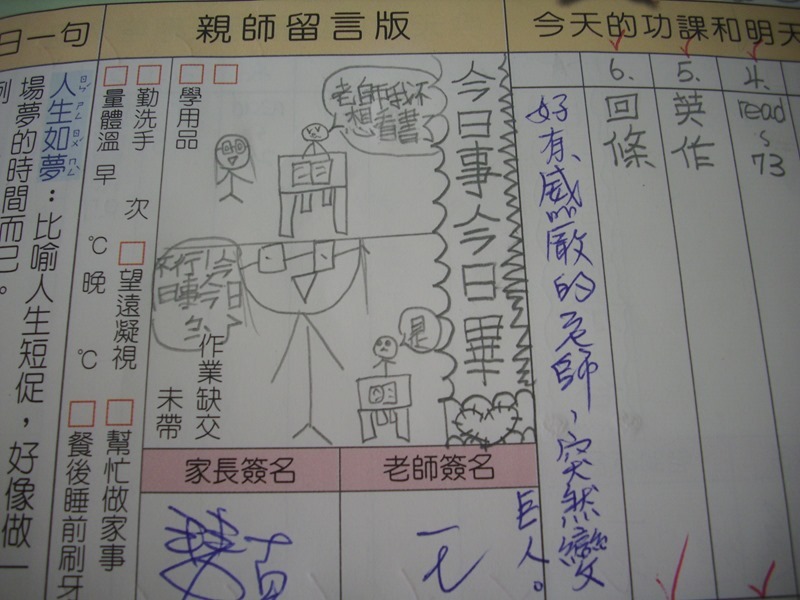 今天的功課和明天
4.
read
~
73
5.
英作
6.
回條
好有威嚴的老師，突然變
巨人。
親師留言版
今日事今日畢
老師我不
想看書了
不行!今
日事今日
是
學用品
作業缺交
未帶
勤洗手 次
望遠凝視
幫忙做家事
量體溫 早 ℃ 晚 ℃
餐後睡前刷牙
家長簽名
老師簽名
日一句
人生如夢：比喻人生短促，好像做一
場夢的時間而已。
例